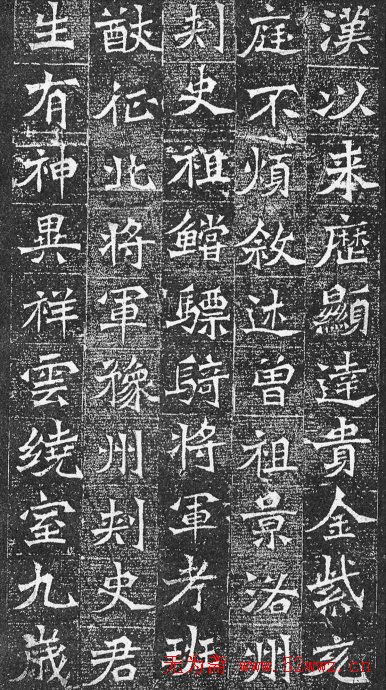 漢以来歷顯達貴金紫充
庭不煩敘述曽祖景洛州
刾史祖鱨驃騎将軍考班
猷征北将軍豫州刾史君
生有神異祥雲繞室九歲
无为斋 www.52wwz.cn